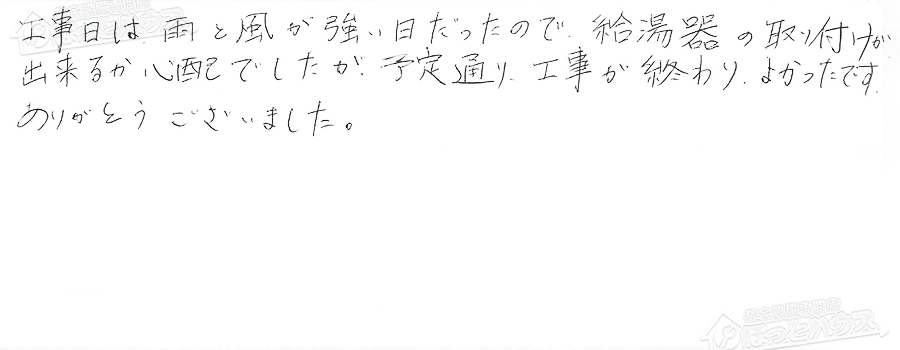 工事日は 雨と風が強い日だったので、給湯器の取り付けが
出来るか心配でしたが、予定通り、工事が終わり、よかったです。
ありがとうございました。
住宅設備専門店
ほっとハウス